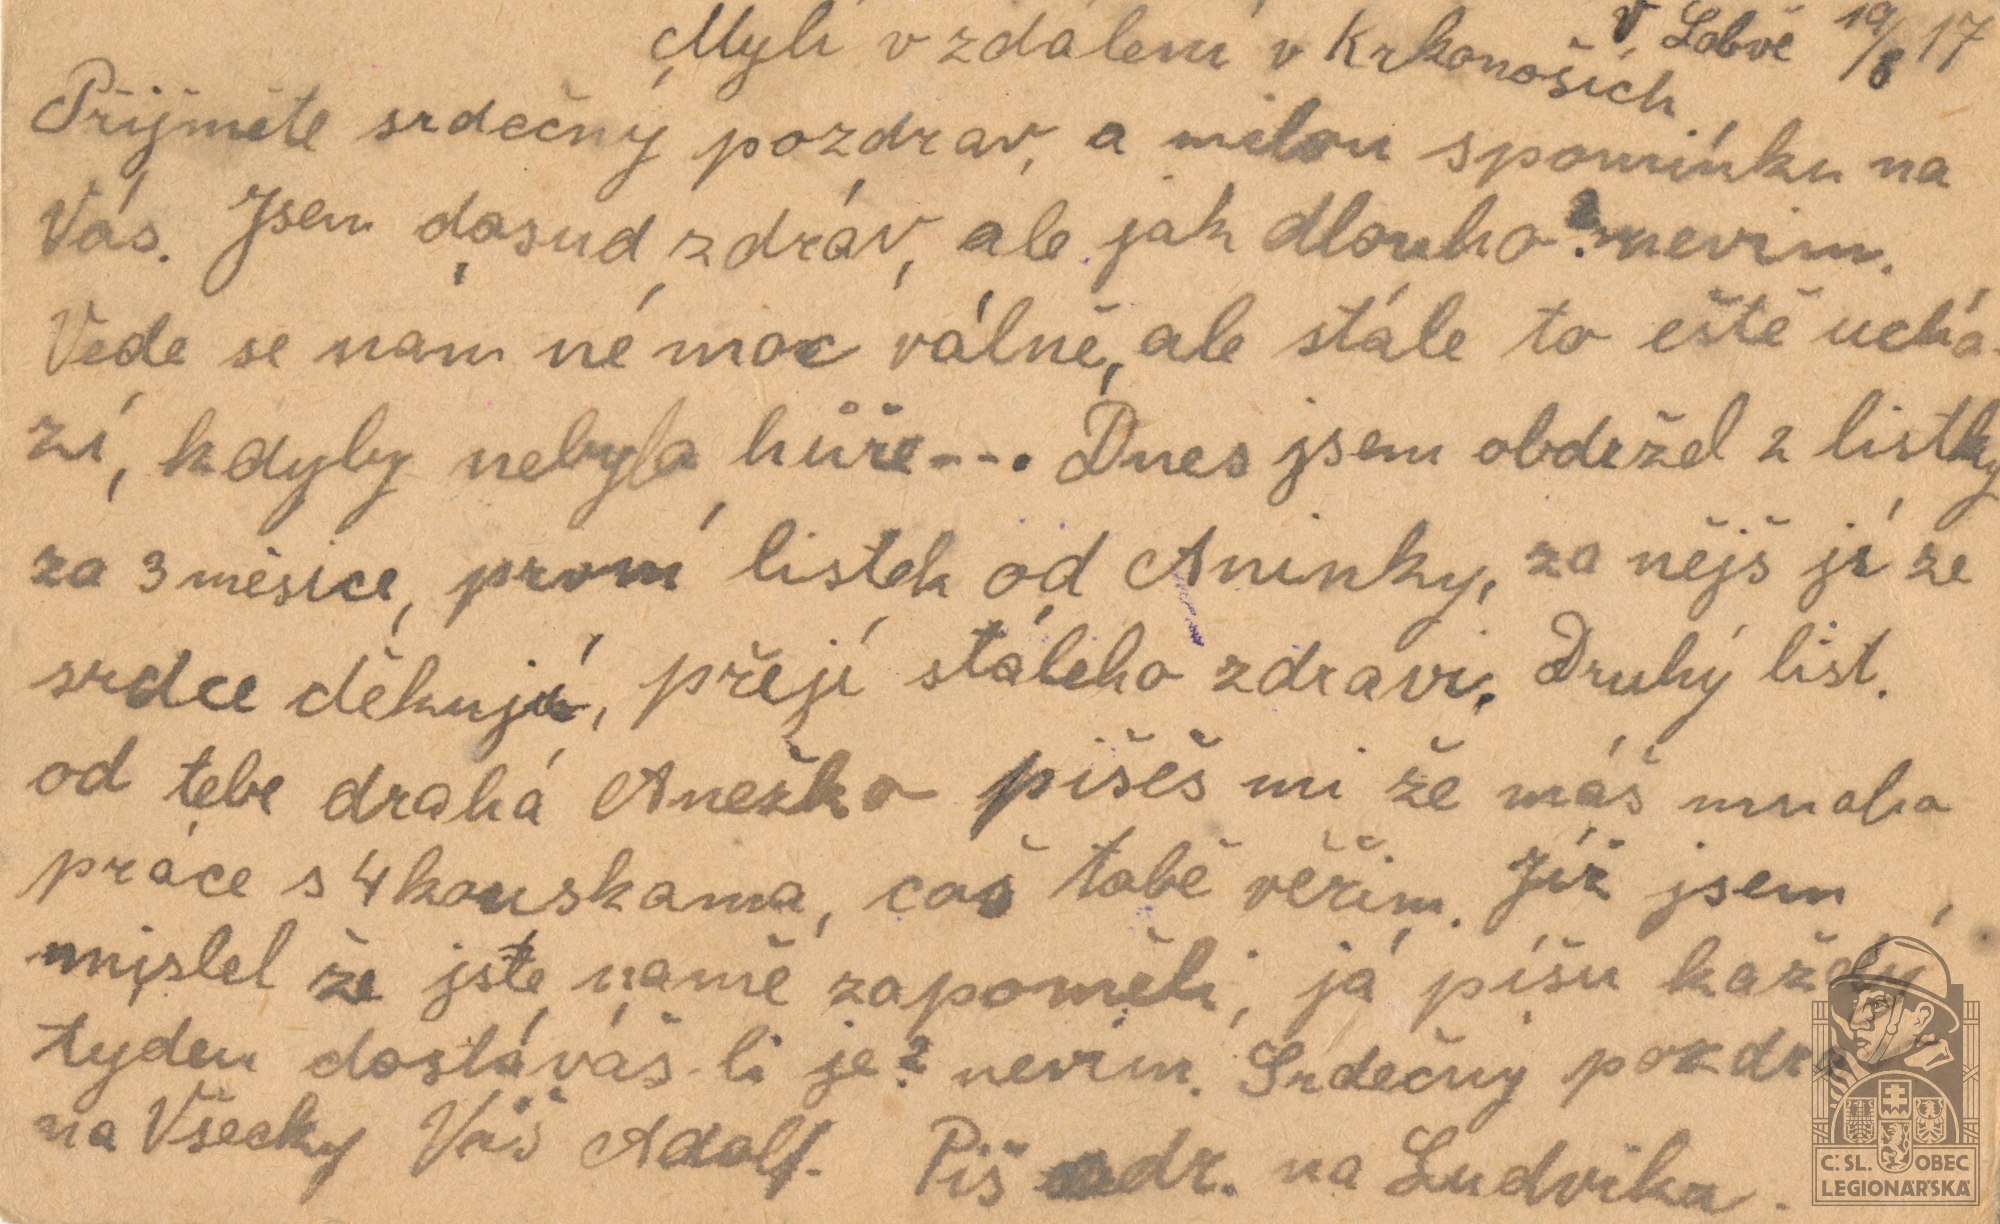 v Lobvě 19/8 17
Mylí vzdálení v Krkonoších
Přijměte srdečný pozdrav, a milou spomínku na
Vás. Jsem dosud zdráv, ale jak dlouho? nevim.
Vede se nám né moc válně, ale stále to eště uchá-
zí, kdyby nebyla hůře---. Dnes jsem obdržel 2 listky
za 3 měsice, první listek od Aninky, za nějš jí ze
srdce děkuji, přejí stáleho zdraví. Druhý list.
od tebe drahá Anežko píšěš mi že máš mnoho
práce s 4 kouskama, což tobě věřim. Již jsem
mislel že jste namě zapoměli, já píšu každý
tyden dostáváš-li je? nevim. Srdečný pozdra
na Všecky Váš Adolf. Piš adr. na Ludvika.
Č. SL. OBEC
LEGIONÁŘSKÁ